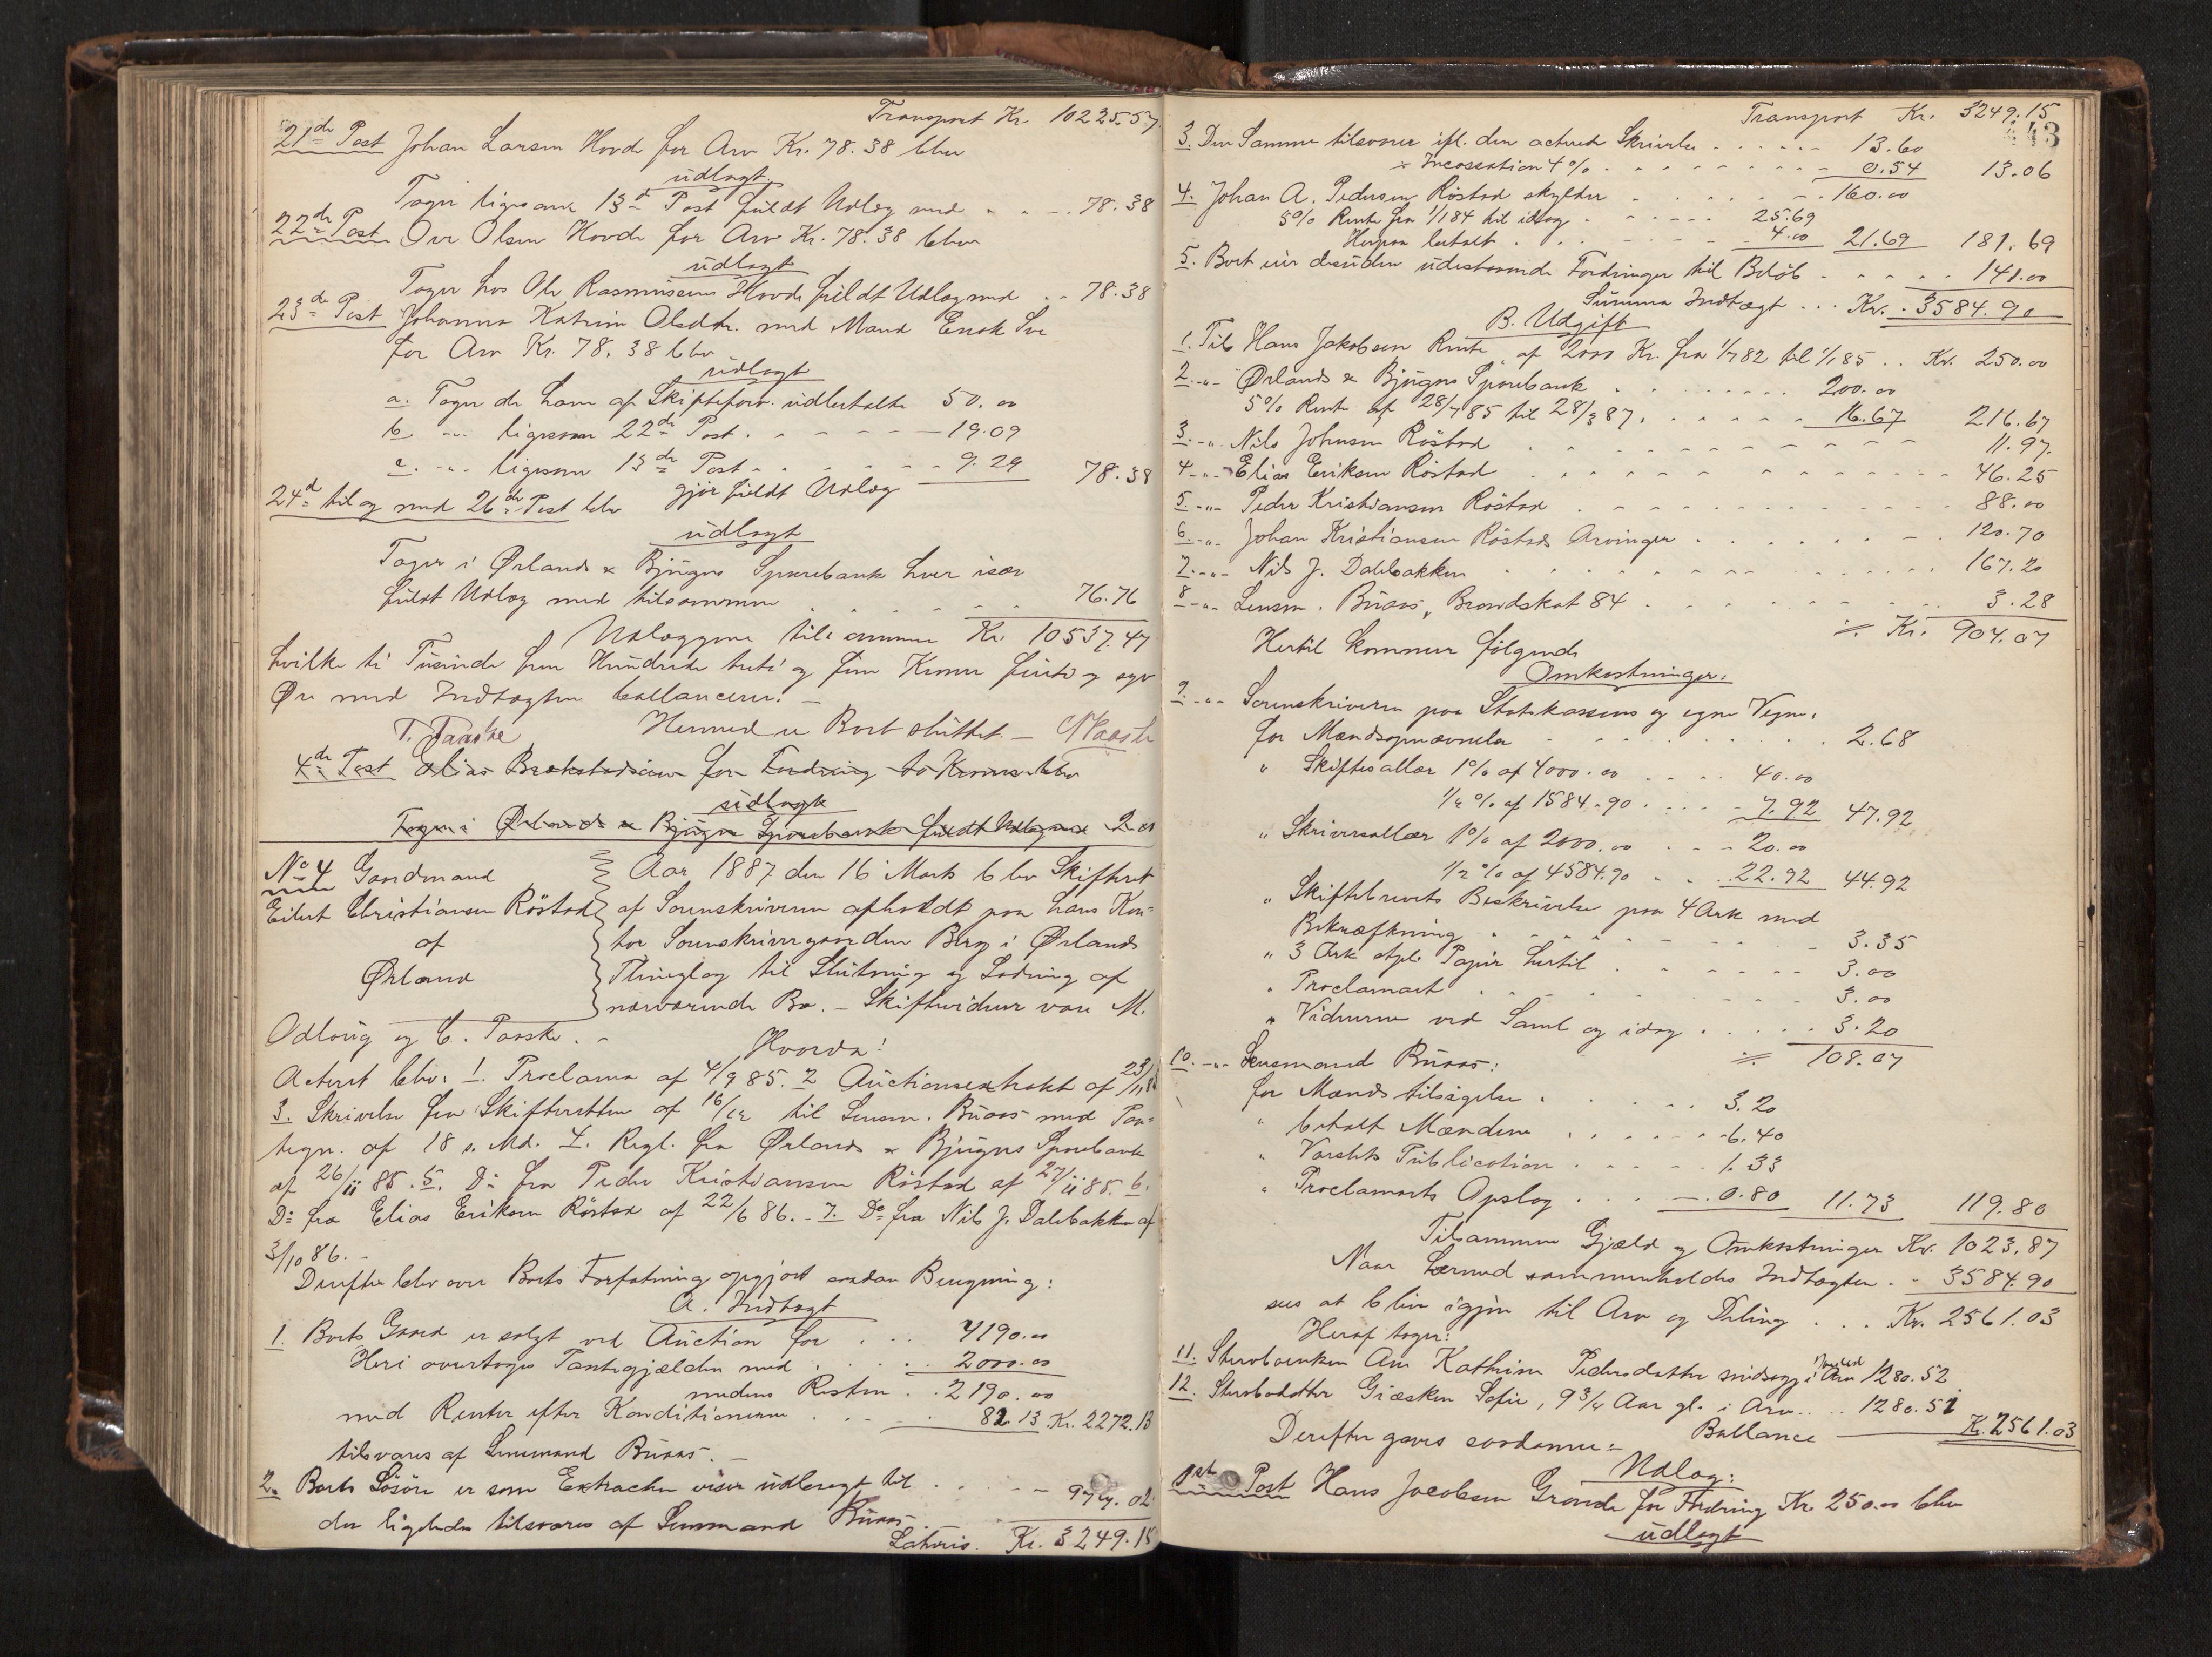 Transport Kr. 10225.57
21de Post Johan Larsen Hovde for Arv Kr. 78.38 blev
udlagt
Tager ligesom 13de Post fuldt Udlæg med . . . 78.38
22de Post Ove Olsen Hovde for Arv Kr. 78.38 blev
udlagt
Tager hos Ole Rasmussen Hovde fuldt Udlæg med . . 78.38
23de Post Johanna Katrine Olsdtr. med Mand Enok
for Arv Kr. 78.38 blev
udlagt
a. Tager de ham af Skifteforv. udbetalte 50.00
b. -„- ligesom 22de Post . . . . 19.09
c. -„- ligesom 13de Post . . . . 9.29
gjør fuldt Udlæg 78.38
24de til og med 26de Post blev
udlagt
Tager i Ørlands & Bjugns Sparebank hver især
fuldt Udlæg med tilsammen . . . . 76.76
Udlæggene tilsammen Kr. 10537.47
hvilke ti Tusinde fem Hundrede treti og Kroner og syv
Øre med Indtægten ballancerer. –
Hermed er Boet sluttet. –
4de Post Elias for Fordring to Kroner blev
udlagt
Tager i Ørlands & Bjugns Sparebank fuldt Udlæg med 2.00
No 4 Gaardmand
Eilert Christiansen Röstad
af
Ørland
Aar 1887 den 16 Marts blev Skifteret
af Sorenskriveren afholdt paa hans Kon=
tor Sorenskrivergaarden Berg i Ørlands
Thinglag til Slutning og Lodning af
nærværende Bo. – Skiftevidner vare M.
Odlaug og C. Paaske. –
Hvorda!
Acteret blev: 1. Proclama af 4/9 85. 2 Auctionsextrakt af 23/11 85
3. Skrivelse fra Skifteretten af 16/12 til Lensm. Buaas med Paa=
tegn. af 18 s. Md. 4. Regl. fra Ørlands & Bjugns Sparebank
af 26/11 85. 5. Do fra Peder Kristiansen Röstad af 27/11 85. 6.
Do fra Elias Eriksen Röstad af 22/6 86. – 7. Do fra Nils J. Dalebakken af
3/10 86. –
Derefter blev over Boets Forfatning opgjort saadan Beregning:
A. Indtægt
1. Boets Gaard er solgt ved Auction for . . . 4190.00
Heri overtages Pantegjælden med . . . . 2000.00
medens Resten . . 2190.00
med Renter efter Konditionerne . . . . 82.13 Kr. 2272.13
tilsvares af Lensmand Buaas. –
2. Boets Løsøre er som Extracten viser udbragt til . . . . 977.02
der ligeledes tilsvares af Lensmand Buaas
Lateris. Kr. 3249.15
Transport Kr. 3249.15
443
3. Den Samme tilsvarer ifl. den acterede Skrivelse . . . . . 13.60
÷ Incassation 4% . . . . . . 0.54 13.06
4. Johan A. Pedersen Röstad skylder . . . . . 160.00
5% Rente fra 1/1 84 til idag . . . . . 25.69
Herpaa betalt . . . . . 4.00 21.69 181.69
5. Boet eier desuden udestaaende Fordringer til Beløb . . . . . 141.00
Summa Indtægt . . . Kr. 3584.90
B. Udgift
1. Til Hans Jakobsen Rente af 2000 Kr. fra 1/7 82 til 1/1 85 . . Kr. 250.00
2. -„- Ørlands & Bjugns Sparebank . . . . . 200.00
5% Rente af 28/7 85 til 28/3 87. . . . . 16.67 216.67
3. -„- Nils Johnsen Röstad . . . . . 11.97.
4 -„- Elias Eriksen Röstad . . . . . 46.25
5. -„- Peder Kristiansen Röstad . . . . . 88.00
6. -„- Johan Kristiansen Röstads Arvinger . . . . . 120.70
7. -„- Nils J. Dalebakken . . . . . 167.20
8 -„- Lensm. Buaas, Brandskat 84 . . . . . 3.28
÷ Kr. 904.07
Hertil kommer følgende
Omkostninger:
9. -„- Sorenskriveren paa Statskassens og egne Vegne.
for Mændsopnævnelse . . . . . 2.68
„ Skiftesallær 1% af 4000.00 . . . . 40.00
1/2 % af 1584.90 . . . . 7.92 47.92
„ Skriversallær 1% af 2000.00 . . . 20.00
1/2 % af 4584.90 . . . 22.92 44.92
„ Skiftebrevets Beskrivelse paa 4 Ark med
Bekræftning . . . . . 3.35
„ 3 Ark stpl. Papir hertil . . . . . 3.00
„ Proclamaet . . . . . 3.00
„ Vidnerne ved Saml og idag . . . . . 3.20
÷ 108.07
10. -„- Lensmand Buaas:
for Mænds tilsigelse . . . . . 3.20
„ betalt Mændene . . . . . 6.40
„ Varslets Publication . . . . . 1.33
„ Proclamaets Opslag . . . . 0.80 11.73 119.80
Tilsammen Gjæld og Omkostninger Kr. 1023.87
Naar hermed sammenholdes Indtægten . . 3584.90
sees at blive igjen til Arv og Deling . . . Kr. 2561.03
Heraf tager:
11. Sterboenken Ane Kathrine Pedersdatter Arv 1280.52
12. Sterbodatter Giæsken Sofie, 9 3/4 Aar gl. i Arv . . . 1280.51
Ballance Kr. 2561.03
Derefter gaves saadanne:
Udlæg:
1ste Post Hans Jacobsen Grande for Fordring Kr 250.00 blev
udlagt